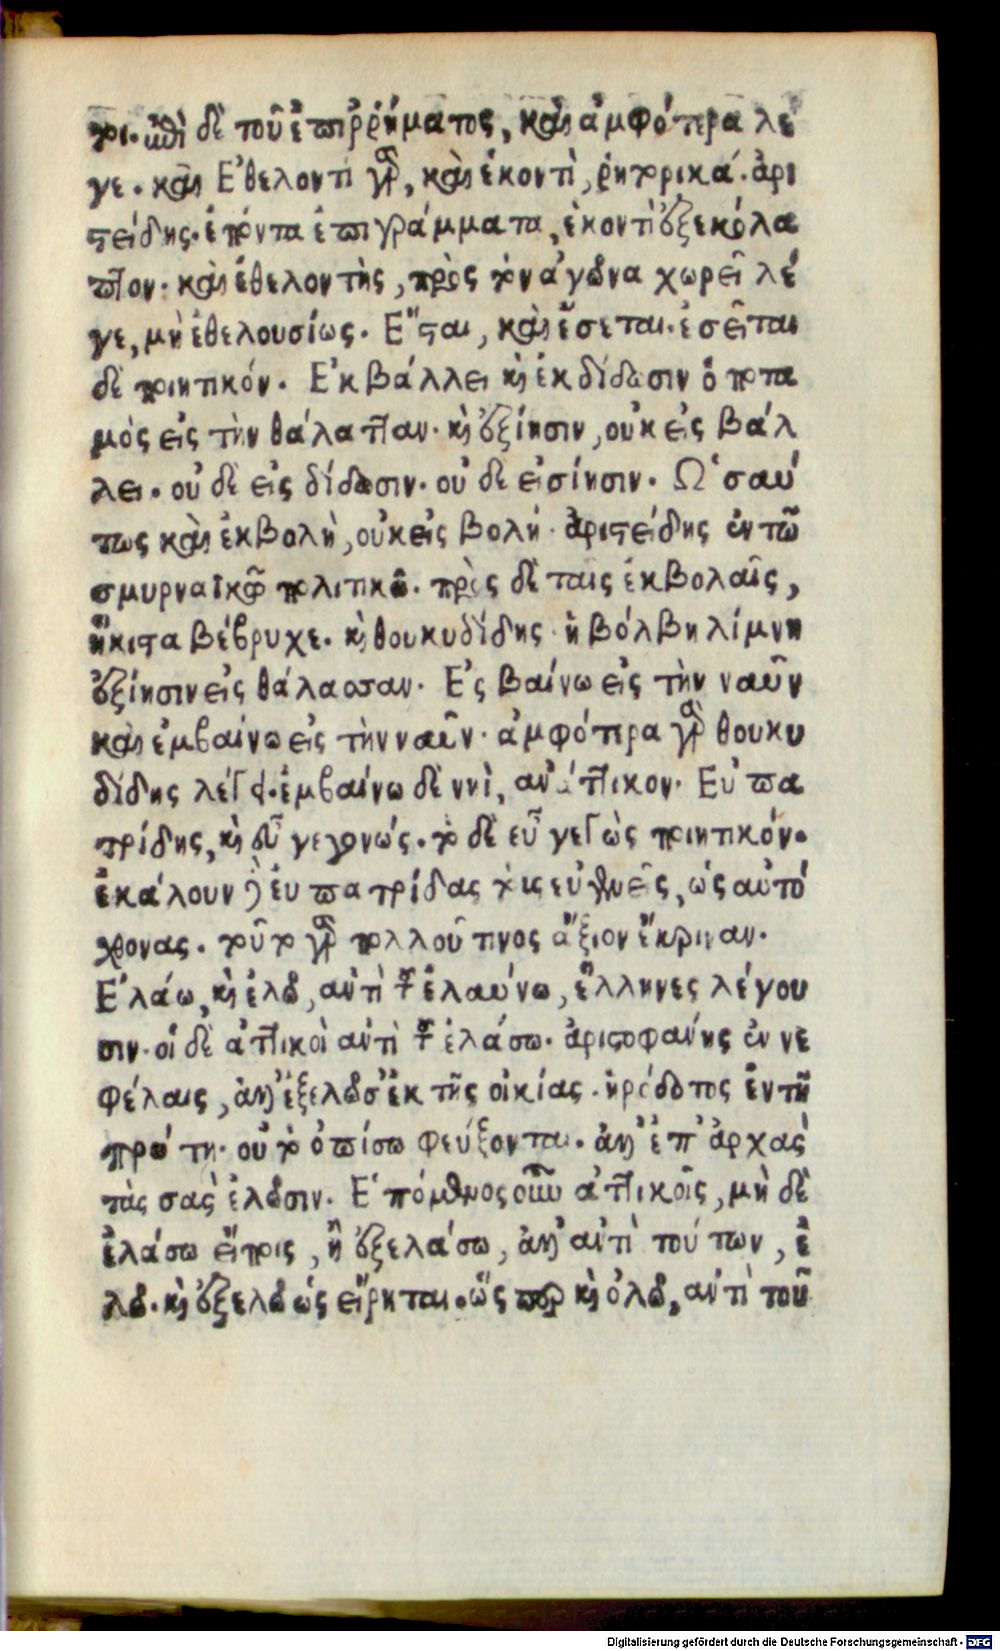 τοι. ἐπὶ δὲ τοῦ ἐπιῤῥήματος, καὶ ἀμφότερα λέ
γε. καὶ Ἐθελοντὶ γὰρ, καὶ ἑκοντὶ, ῥητορικά. ἀρι
στείδης. ἑπόντα ἐπιγράμματα, ἑκοντὶ ἐξεκόλα
πτον. καὶ ἐθελοντὴς, πρὸς τὸν ἀγῶνα χωρεῖ λέ
γε, μὴ ἐθελουσίως. Ἔσται, καὶ ἔσεται. ἐσεῖται
δὲ ποιητικόν. Ἐκβάλλει καὶ ἐκδίδωσιν ὁ ποτα
μὸς εἰς τὴν θάλατταν. καὶ ἐξίησιν, οὐκ εἰς βάλ
λει. οὐδὲ εἰς δίδωσιν. οὐδὲ εἰσίησιν. Ὡσαύ
τως καὶ ἐκβολὴ, οὐκ εἰς βολή. ἀριστείδης ἐν τῷ
σμυρναϊκῷ πολιτικῷ. πρὸς δὲ ταῖς ἐκβολαῖς,
ἥκιστα βέβρυχε. καὶ θουκυδίδης. ἡ βόλβη λίμνη
ἐξίησιν εἰς θάλασσαν. Ἐς βαίνω εἰς τὴν ναῦν
καὶ ἐμβαίνω εἰς τὴν ναῦν. ἀμφότερα γὰρ θουκυ
δίδης λέγει. ἐμβαίνω δὲ νηὶ, ἀνάττικον. Εὐπα
τρίδης, καὶ εὖ γεγονώς. τὸ δὲ εὖ γεγὼς ποιητικόν.
ἐκάλουν δὲ εὐπατρίδας τοὺς εὐγενεῖς, ὡς αὐτό
χθονας. τοῦτο γὰρ πολλοῦ τινος ἄξιον ἔκριναν.
Ἐλάω, καὶ ἐλῶ, ἀντὶ τοῦ ἐλαύνω, ἕλληνες λέγου
σιν. οἱ δὲ ἀττικοὶ ἀντὶ τοῦ ἐλάσω. ἀριστοφάνης ἐν νε
φέλαις, ἀλλ' ἐξελῶ σ' ἐκ τῆς οἰκίας. ἡρόδοτος ἐν τῇ
πρώτῃ. οὐ τὸ ὀπίσω φεύξονται. ἀλλ' ἐπ' ἀρχὰς
τὰς σὰς ἐλῶσιν. Ἑπόμενος οὖν ἀττικοῖς, μὴ δὲ
ἐλάσω εἴποις, ἢ ἐξελάσω, ἀλλ' ἀντὶ τούτων, ἐ
λῶ. καὶ ἐξελῶ ὡς εἴρηται. ὥσπερ καὶ ὀλῶ, ἀντὶ τοῦ
Digitalisierung gefördert durch die Deutsche Forschungsgemeinschaft - DFG